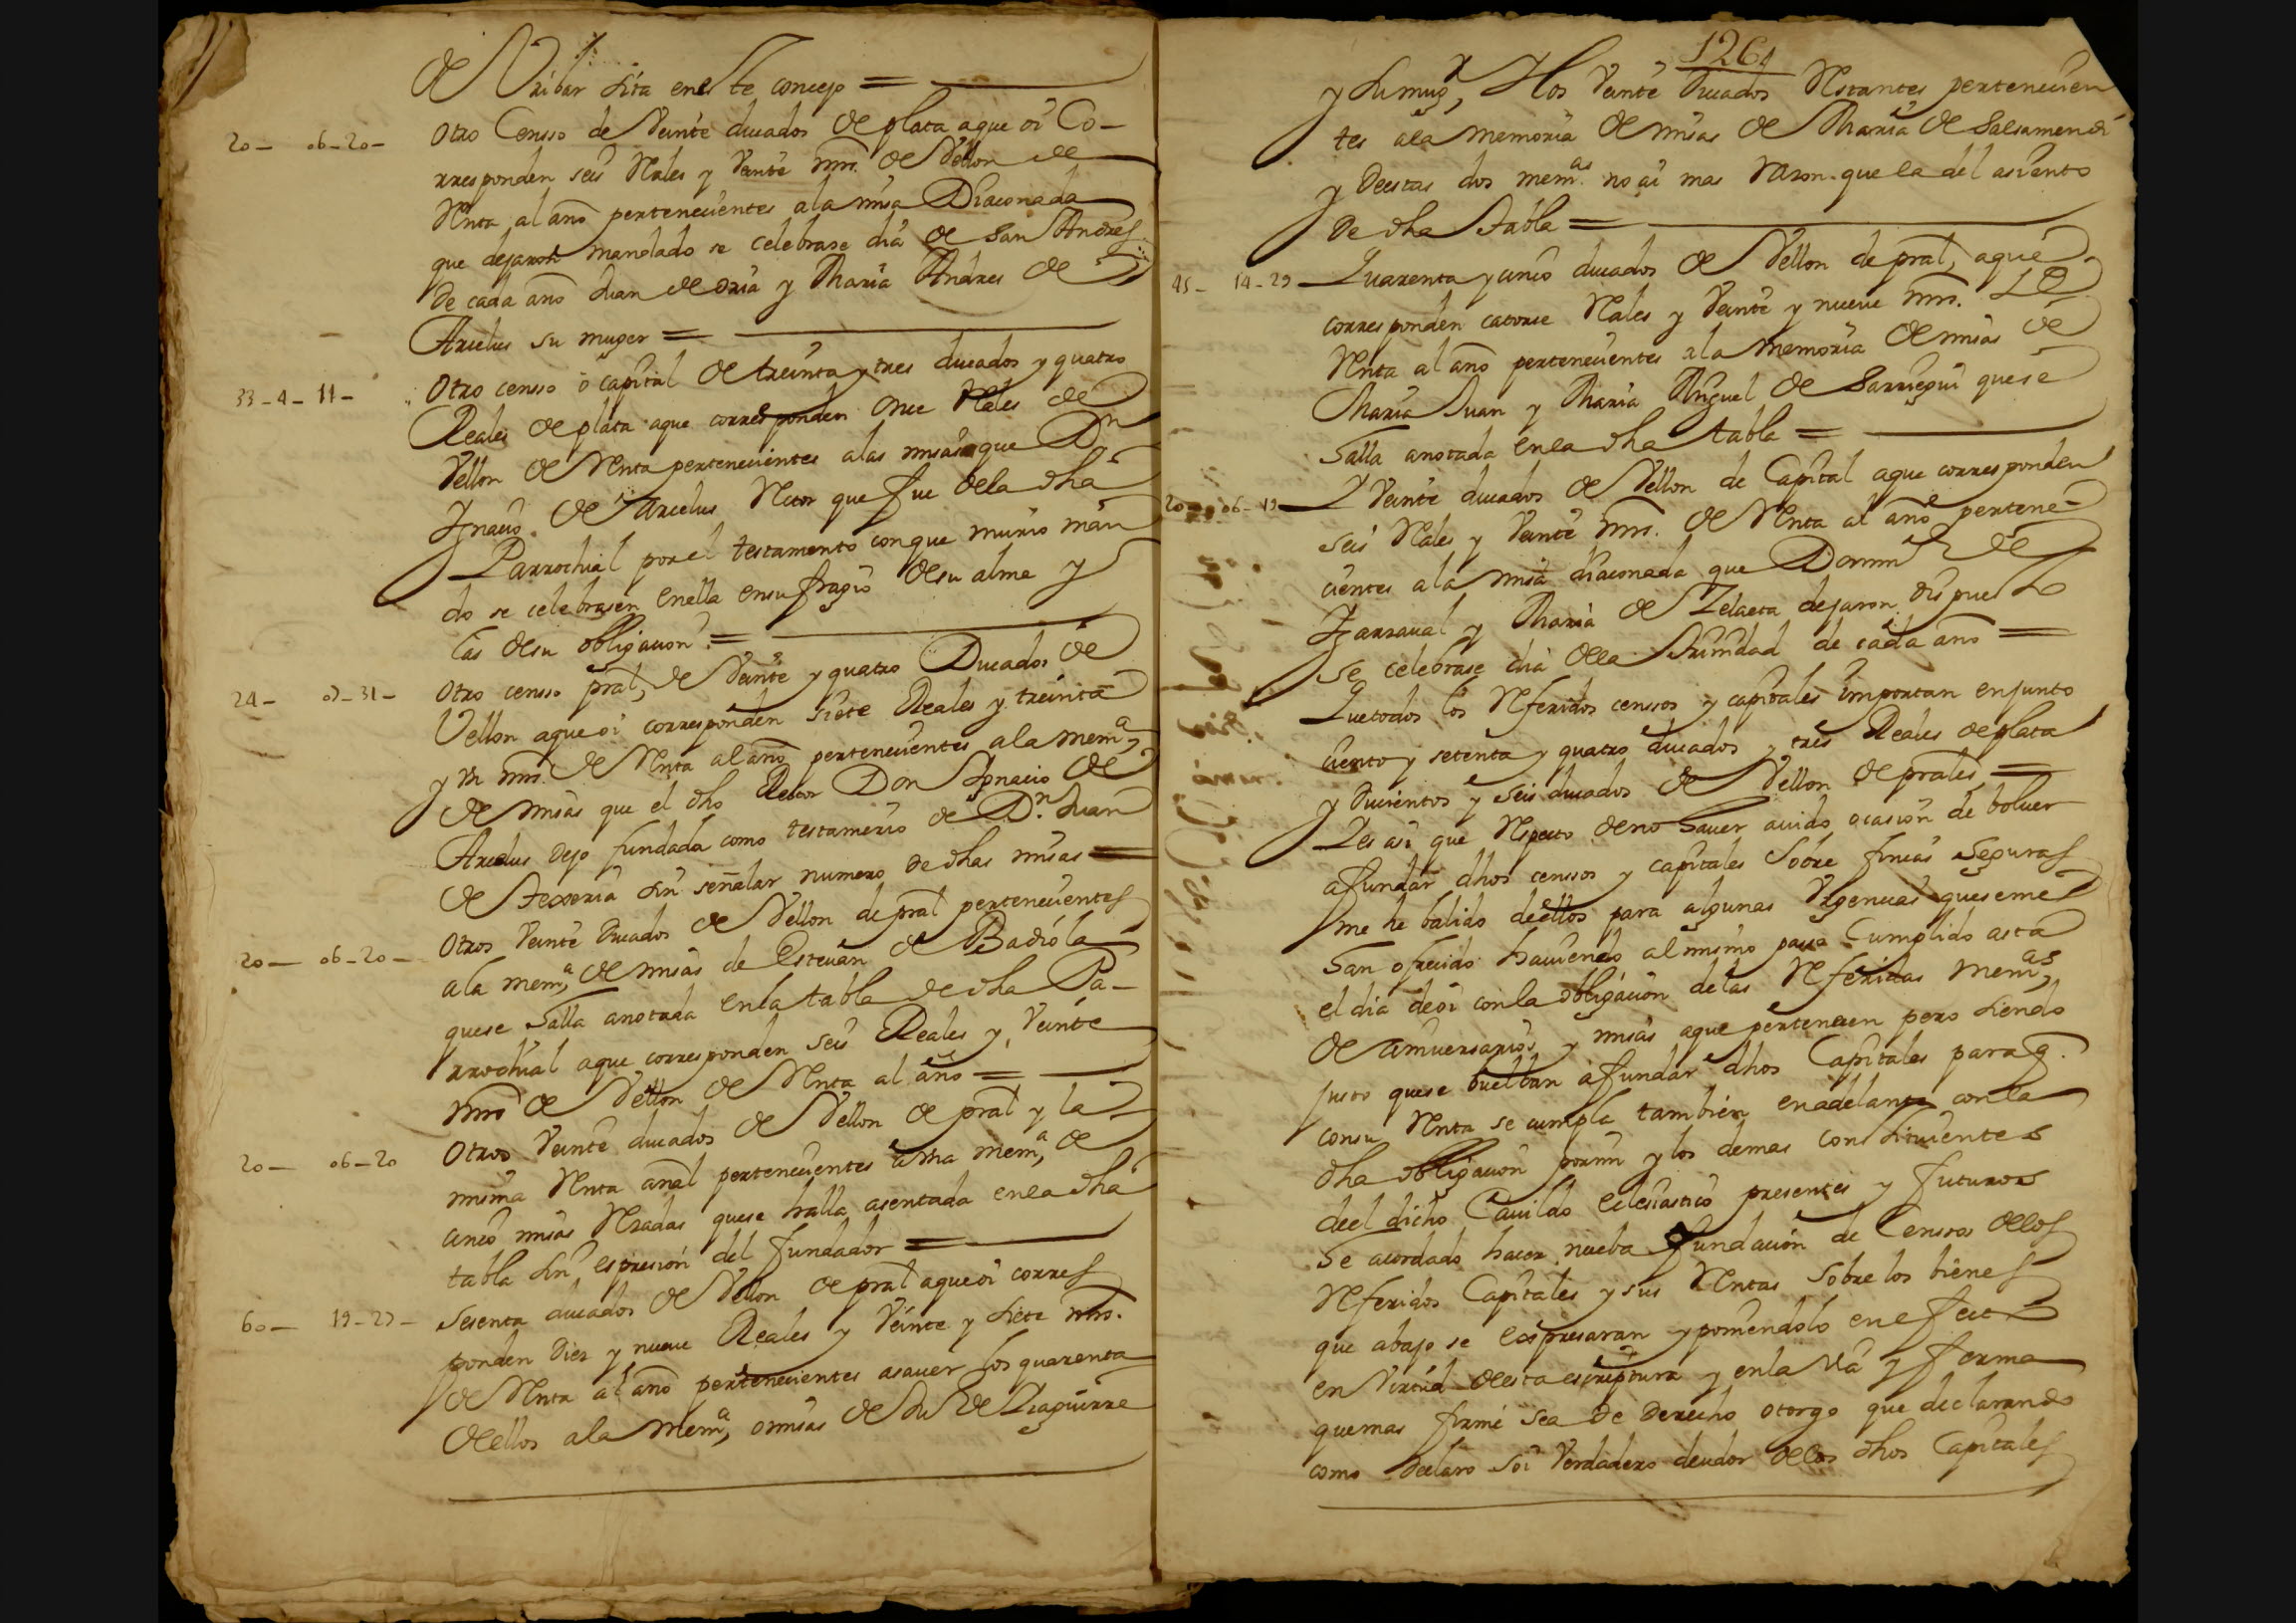 de Uribar sita en este concejo =
20 — 06-20 — Otro Censso de Veinte ducados de plata aque oi Co-
rresponden seis Rales y Veinte mrs. de Vellon de
Renta al año pertenecientes ala misa Diaconada
que dejaron mandado se celebrase dia de San Andres
de cada año Juan de oria y Maria Andres de
Arcelus su muger =
33-4-11- Otro censso o capital de treinta y tres ducados y quatro
Reales de plata aque corresponden once Rales de
Vellon de Renta pertenecientes alas misas que Dn
Ignacio de Arcelus Retor que fue dela dha
Parrochial por el testamento conque murio man
do se celebrasen enella ensufragio desu alma y
las desu obligacion =
24 — 07-31 — Otro censso pral, de Veinte y quatro Ducados de
Vellon aque oi corresponden siete Reales y treinta
y un mrs. de Renta al año pertenecientes ala mema
de misas que el dho Retor Don Ignacio de
Arcelus dejo fundada como testamerio de Dn. Juan
de Texeria sin señalar numero de dhas misas =
20 — 06-20 — Otros Veinte Ducados de Vellon de pral pertenecientes
ala mema, de misas de Estevan de Badiola
quese Halla anotada enla tabla de dha Pa-
rrochial aque corresponden seis Reales y Veinte
mrs de Vellon de Renta al año =
20 — 06-20 Otros Veinte ducados de Vellon de pral y la
misma Renta anal pertenecientes a una mema, de
cinco misas Rezadas quese halla asentada enla dha
tabla sin espresion del fundador =
60 — 19-27 — Sesenta ducados de Vellon de pral aque oi corres
ponden diez y nueve Reales y Veinte y siete mrs.
de Renta al año pertenecientes asaver los quarenta
dellos ala mema, o misas de de Izaguirre
1264
y su mugr, Y los Veinte Ducados Restantes pertenecien
tes ala memoria de misas de Maria de Salsamendi
y deestas dos memas. no ai mas Razon que la del asiento
de dha tabla =
45 — 14-29 — Quarenta y cinco ducados de Vellon de pral, aque
corresponden catorse Rales y Veinte y nueve mrs. de
Renta al año pertenecientes ala memoria de misas de
Maria Juan y Maria Miguel de Sarriegui quese
Halla anotada enla dha tabla =
20 — 06-19 — Y Veinte ducados de Vellon de Capital aque corresponden
seis Rales y Veinte mrs. de Renta al año pertene-
cientes ala misa diaconada que Domin de
Zarraval y Maria de Zelaeta dejaron dispuesto
se celebrase dia dela Trinidad de cada año =
Quetodos los Referidos censsos y capitales importan enjunto
ciento y setenta y quatro ducados y tres Reales de plata
y Ducientos y seis ducados de Vellon de prales =
Y es asi que Respecto deno haver avido ocasion de bolver
afundar dhos censsos y capitales sobre fincas seguras
me he balido deellos para algunas Urgencias queseme
han ofrecido haviendo al mismo paso Cumplido asta
el dia deoi conla obligacion delas Referidas memas,
de aniversarios y misas aque pertenecen pero siendo
justo quese buelban afundar dhos Capitales para q.
consu Renta se cumpla tambien enadelante conla
dha obligacion pormi y los demas consirvientes
deel dicho Cavildo eclesiastico presentes y futuros
he acordado hacer nueba fundacion de Censsos delos
Referidos Capitales y sus Rentas sobre los bienes
que abajo se espresaran y poniendolo en efecto
en Virtud deesta escriptura y enla via y forma
quemas firme sea de Derecho otorgo que declarando
como declaro soi Verdadero deudor delos dhos Capitales